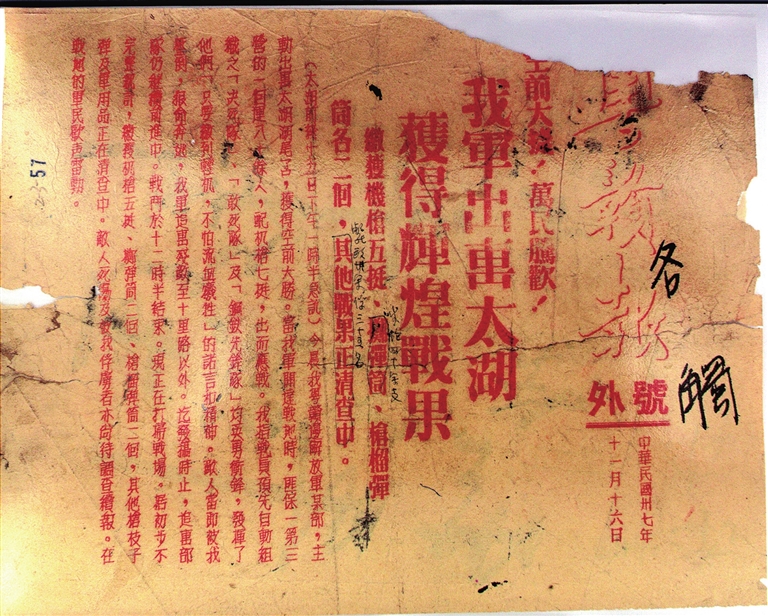 各
號外
中華民國卅七年
月十六日
空前大捷！萬民騰歡！
我軍出擊太湖
獲得輝煌戰果
繳獲機槍五挺、擲彈筒、槍榴彈
筒各二個，其他戰果正清查中。
（太湖前綫十五日下午一時半急訊）今晨我軍解放軍某部，主
動出擊太湖湖尾店，獲得空前大勝。當我軍開達戰地時，匪保一第三
營的一個連八十餘人，配机槍七挺，出而應戰。我指戰員預先自動組
織之「決死隊」、「敢死隊」及「鋼鉄先鋒隊」均英勇衝鋒，發揮了
他們「只要繳到輕机，不怕流血犧牲」的諾言和精神。敵人當即被我
擊潰，狼命奔逃，我軍追擊殘敵至十里路以外。迄發搞時止，追擊部
隊仍継續前進中。戰鬥於十二時半結束。現正在打掃戰場。据初步不
完全統計，繳獲机槍五挺、擲彈筒二個、槍榴弹筒二個，其他槍枝子
彈及軍用品正在清查中。敵人死傷及被我俘虜者亦尚待調查續報。在
戰地的軍民歡声雷動。
57